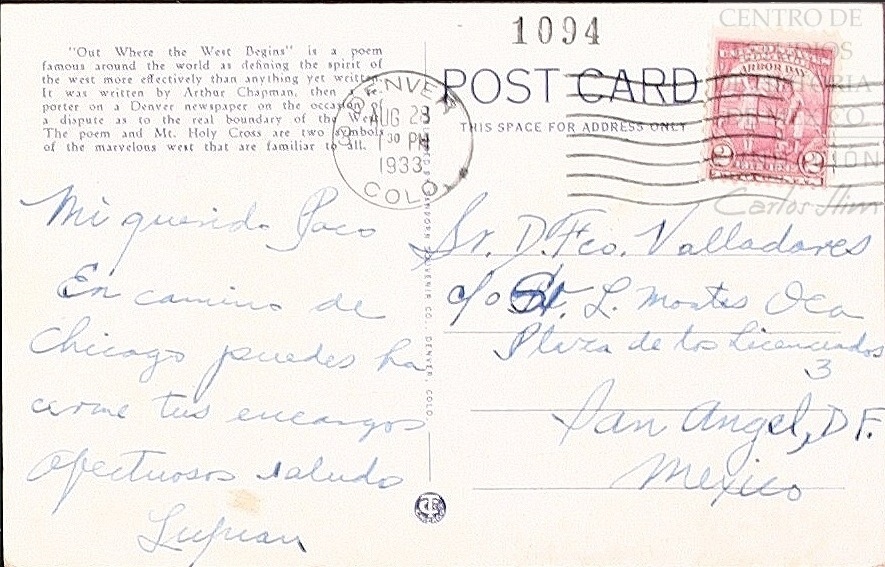 1094
CENTRO DE
"Out Where the West Begins" is a poem
famous around the world as defining the spirit of
the west more effectively than anything yet written.
It was written by Arthur Chapman, then a re-
porter on a Denver newspaper on the occasion of
a dispute as to the real boundary of the West.
The poem and Mt. Holy Cross are two symbols
of the marvelous west that are familiar to all.
DENVER
AUG 28
30 PM
1933
COLO.
POST CARD
THIS SPACE FOR ADDRESS ONLY
ARBOR DAY
2 2
Carlos Slim
SOUVENIR CO., DENVER, COLO.
Mi querido Paco
En camino de
Chicago puedes ha
cerme tus encargos
afectuosos saludo
Lujuan
Sr. D. Fco. Valladares
c/o Sr. L. Montes Oca
Plaza de los Licenciados
3
San Angel, D F.
Mexico